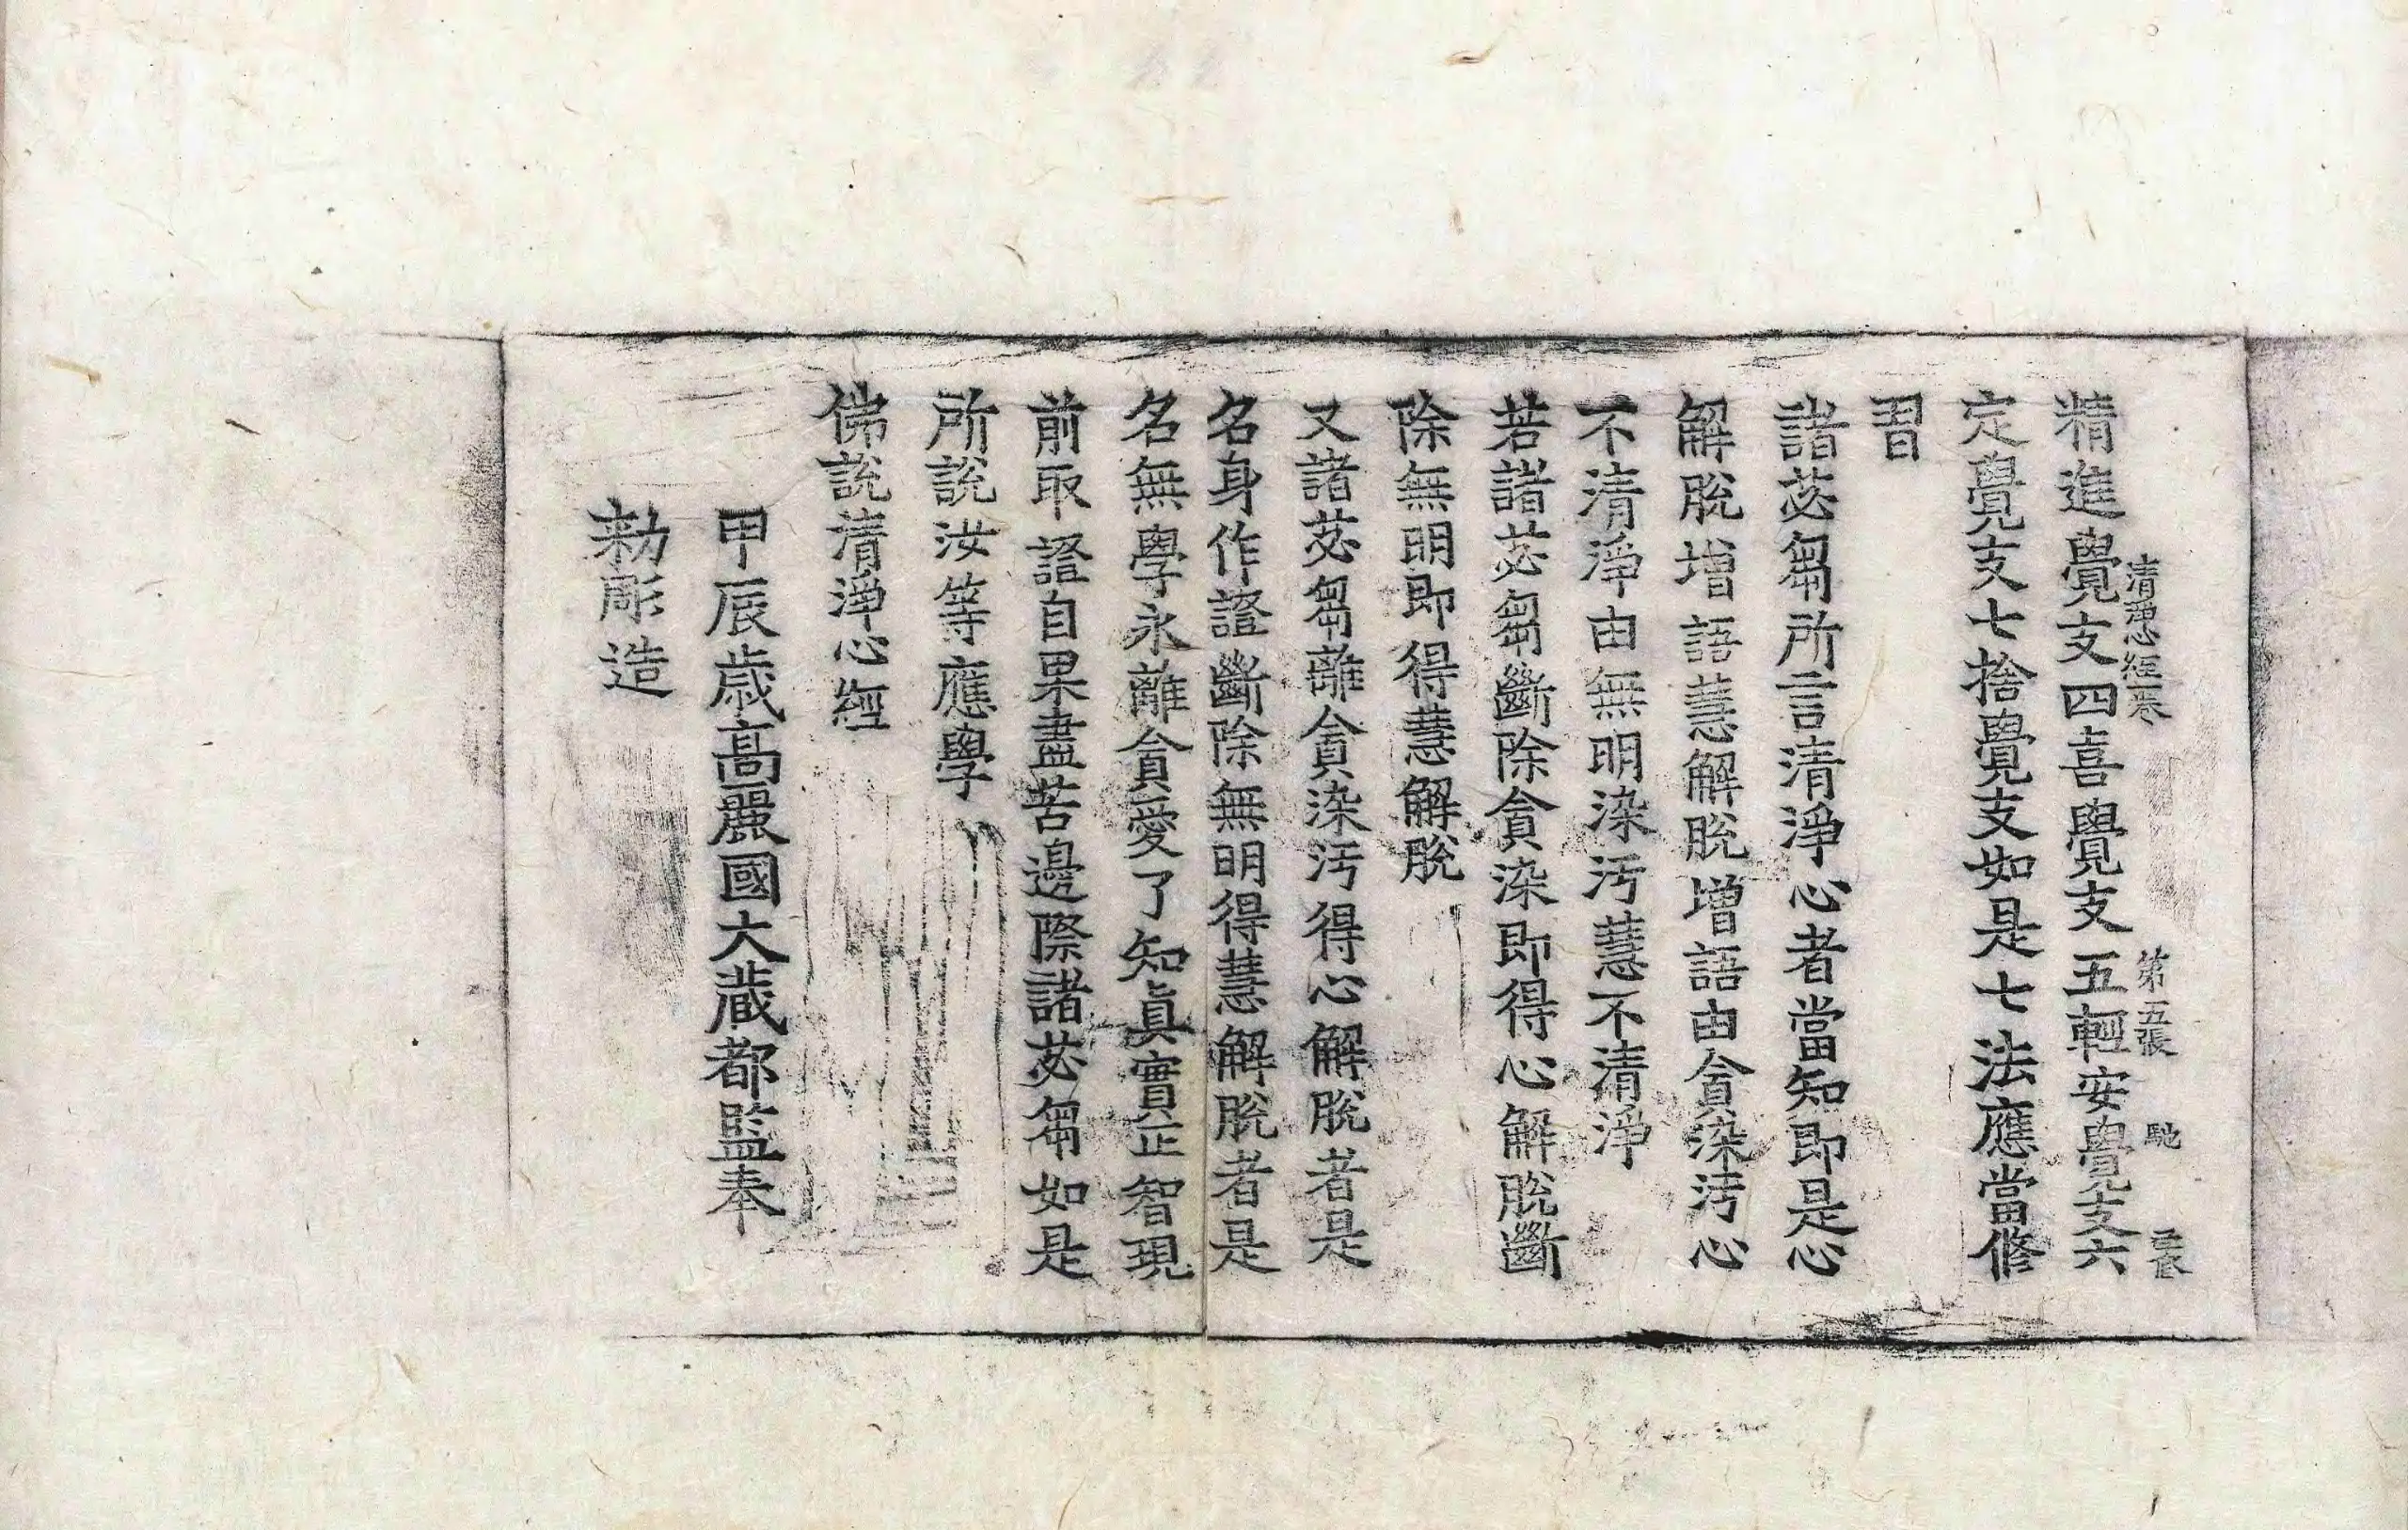 清淨心經卷 第五張 馳
精進覺支四喜覺支五輕安覺支六
定覺支七捨覺支如是七法應當修
習
諸苾芻所言清淨心者當知即是心
解脫增語慧解脫增語由貪染污心
不清淨由無明染污慧不清淨
若諸苾芻斷除貪染即得心解脫斷
除無明即得慧解脫
又諸苾芻離貪染污得心解脫者是
名身作證斷除無明得慧解脫者是
名無學永離貪愛了知眞實正智現
前取證自果盡苦邊際諸苾芻如是
所說汝等應學
佛說清淨心經
甲辰歲高麗國大藏都監奉
勅彫造